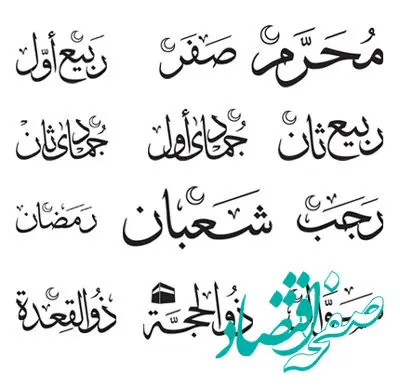 مُحَرَّم صَفَر رَبيع أوَّل
رَبيع ثَان جُمادى أول جُمادى ثَان
رَجَب شَعبان رَمَضان
شوّال ذُو الحجّة ذُو القِعدة
صفحه اقتصاد